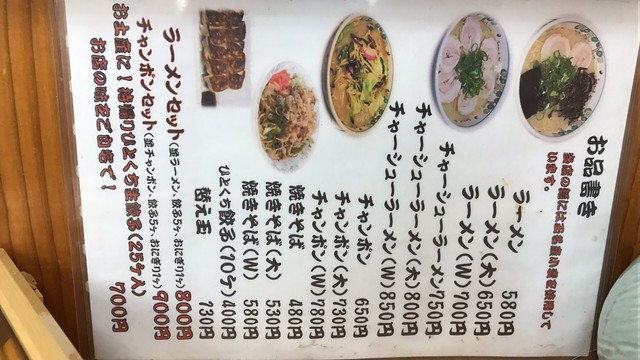 お品書き
当店の麺には
います。
ラーメン 580円
ラーメン(大) 650円
ラーメン(W) 700円
チャーシューラーメン 750円
チャーシューラーメン(大) 800円
チャーシューラーメン(W) 850円
チャンポン 650円
チャンポン(大) 730円
チャンポン(W) 780円
焼きそば 480円
焼きそば(大) 530円
焼きそば(W) 580円
ひとくち餃子(10ケ) 400円
替え玉 130円
ラーメンセット(並ラーメン、餃子5ケ、おにぎり1ケ) 800円
チャンポンセット(並チャンポン、餃子5ケ、おにぎり1ケ) 900円
お土産に!手造りひとくち生餃子(25ケ入) 700円
お店の味をご自宅で!